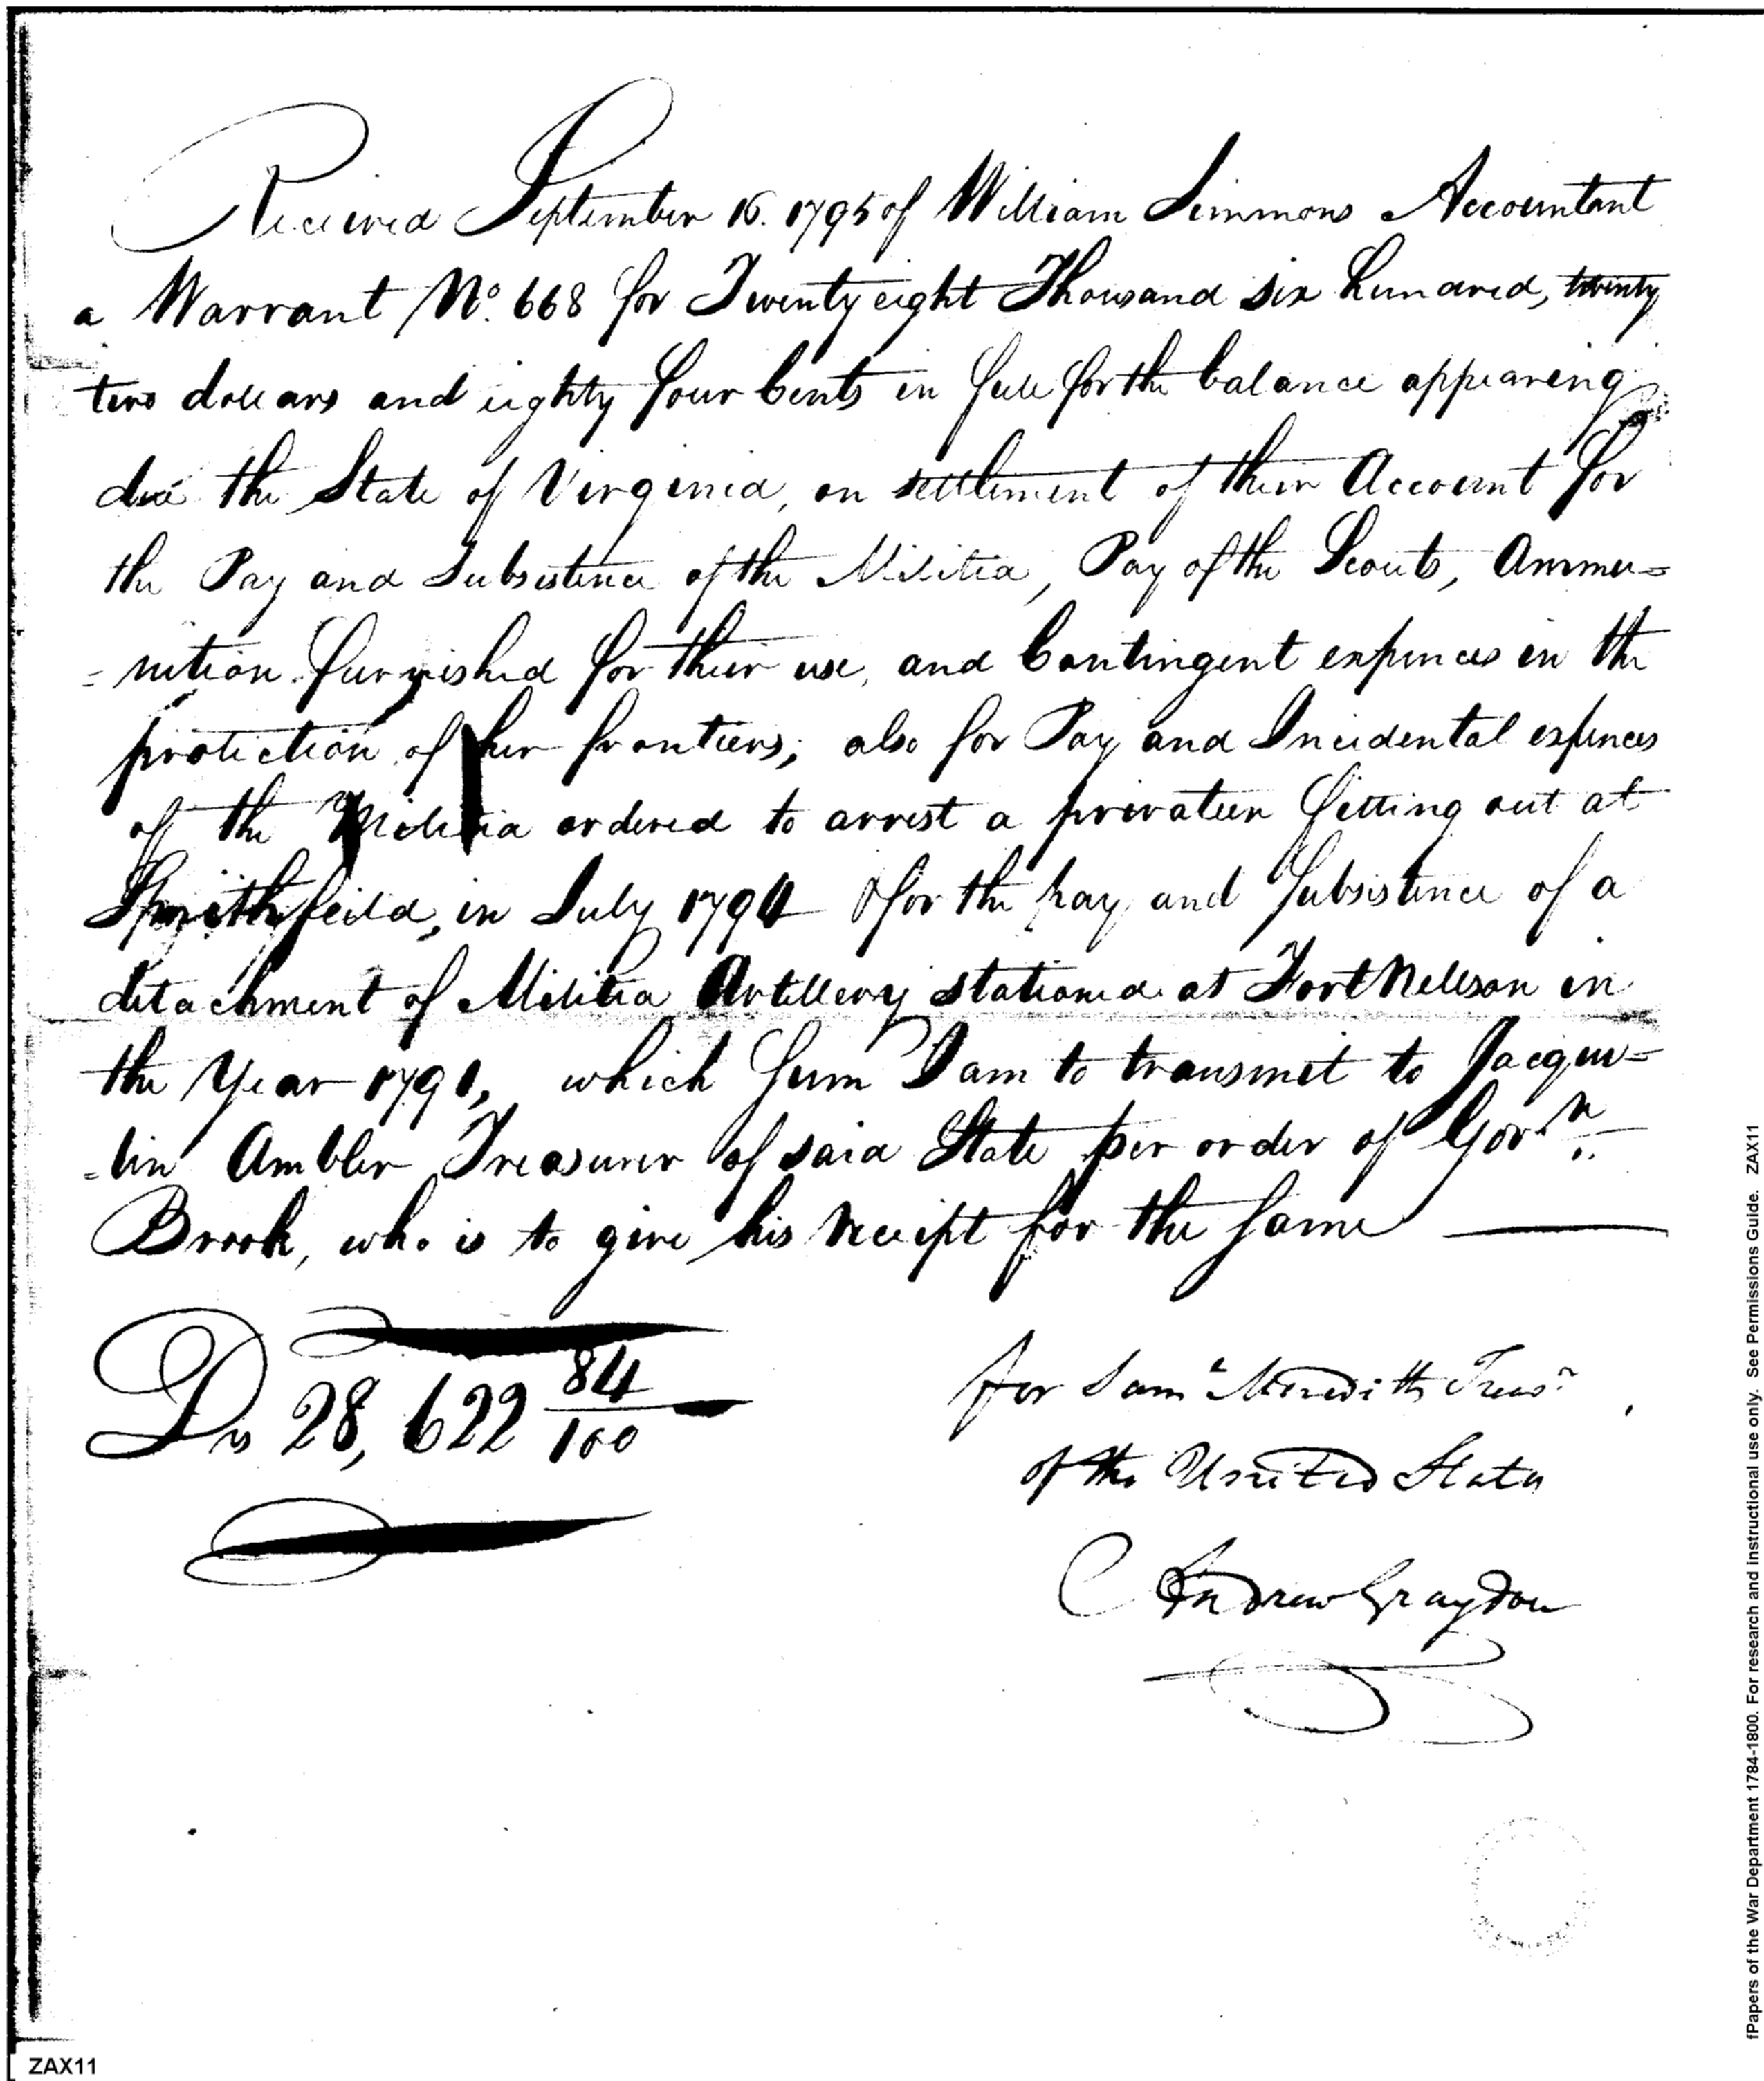 Received September 16. 1795 of William Simmons Accountant
a Warrant No. 668 for Twenty eight Thousand six hundred, twenty
two dollars and eighty four Cents in full for the balance appearing
due the State of Virginia, on settlement of their Account for
the Pay and Subsistence of the Militia, Pay of the Scouts, Ammu=
=nition furnished for their use, and Contingent expences in the
protection of her frontiers; also for Pay and Incidental expences
of the Militia ordered to arrest a privateer fitting out at
Smithfeild, in July 1794 & for the pay and Subsistence of a
detachment of Militia Artillery stationed at Fort Nellson in
the Year 1791, which Sum I am to transmit to Jacque=
=lin Ambler Treasurer of said State per order of Govr.
Brook, who is to give his Receipt for the same
Ds 28,622 84/100
for Saml Meredith Treasr
of the United States
Andrew Graydon
fPapers of the War Department 1784-1800. For research and instructional use only. See Permissions Guide. ZAX11
ZAX11